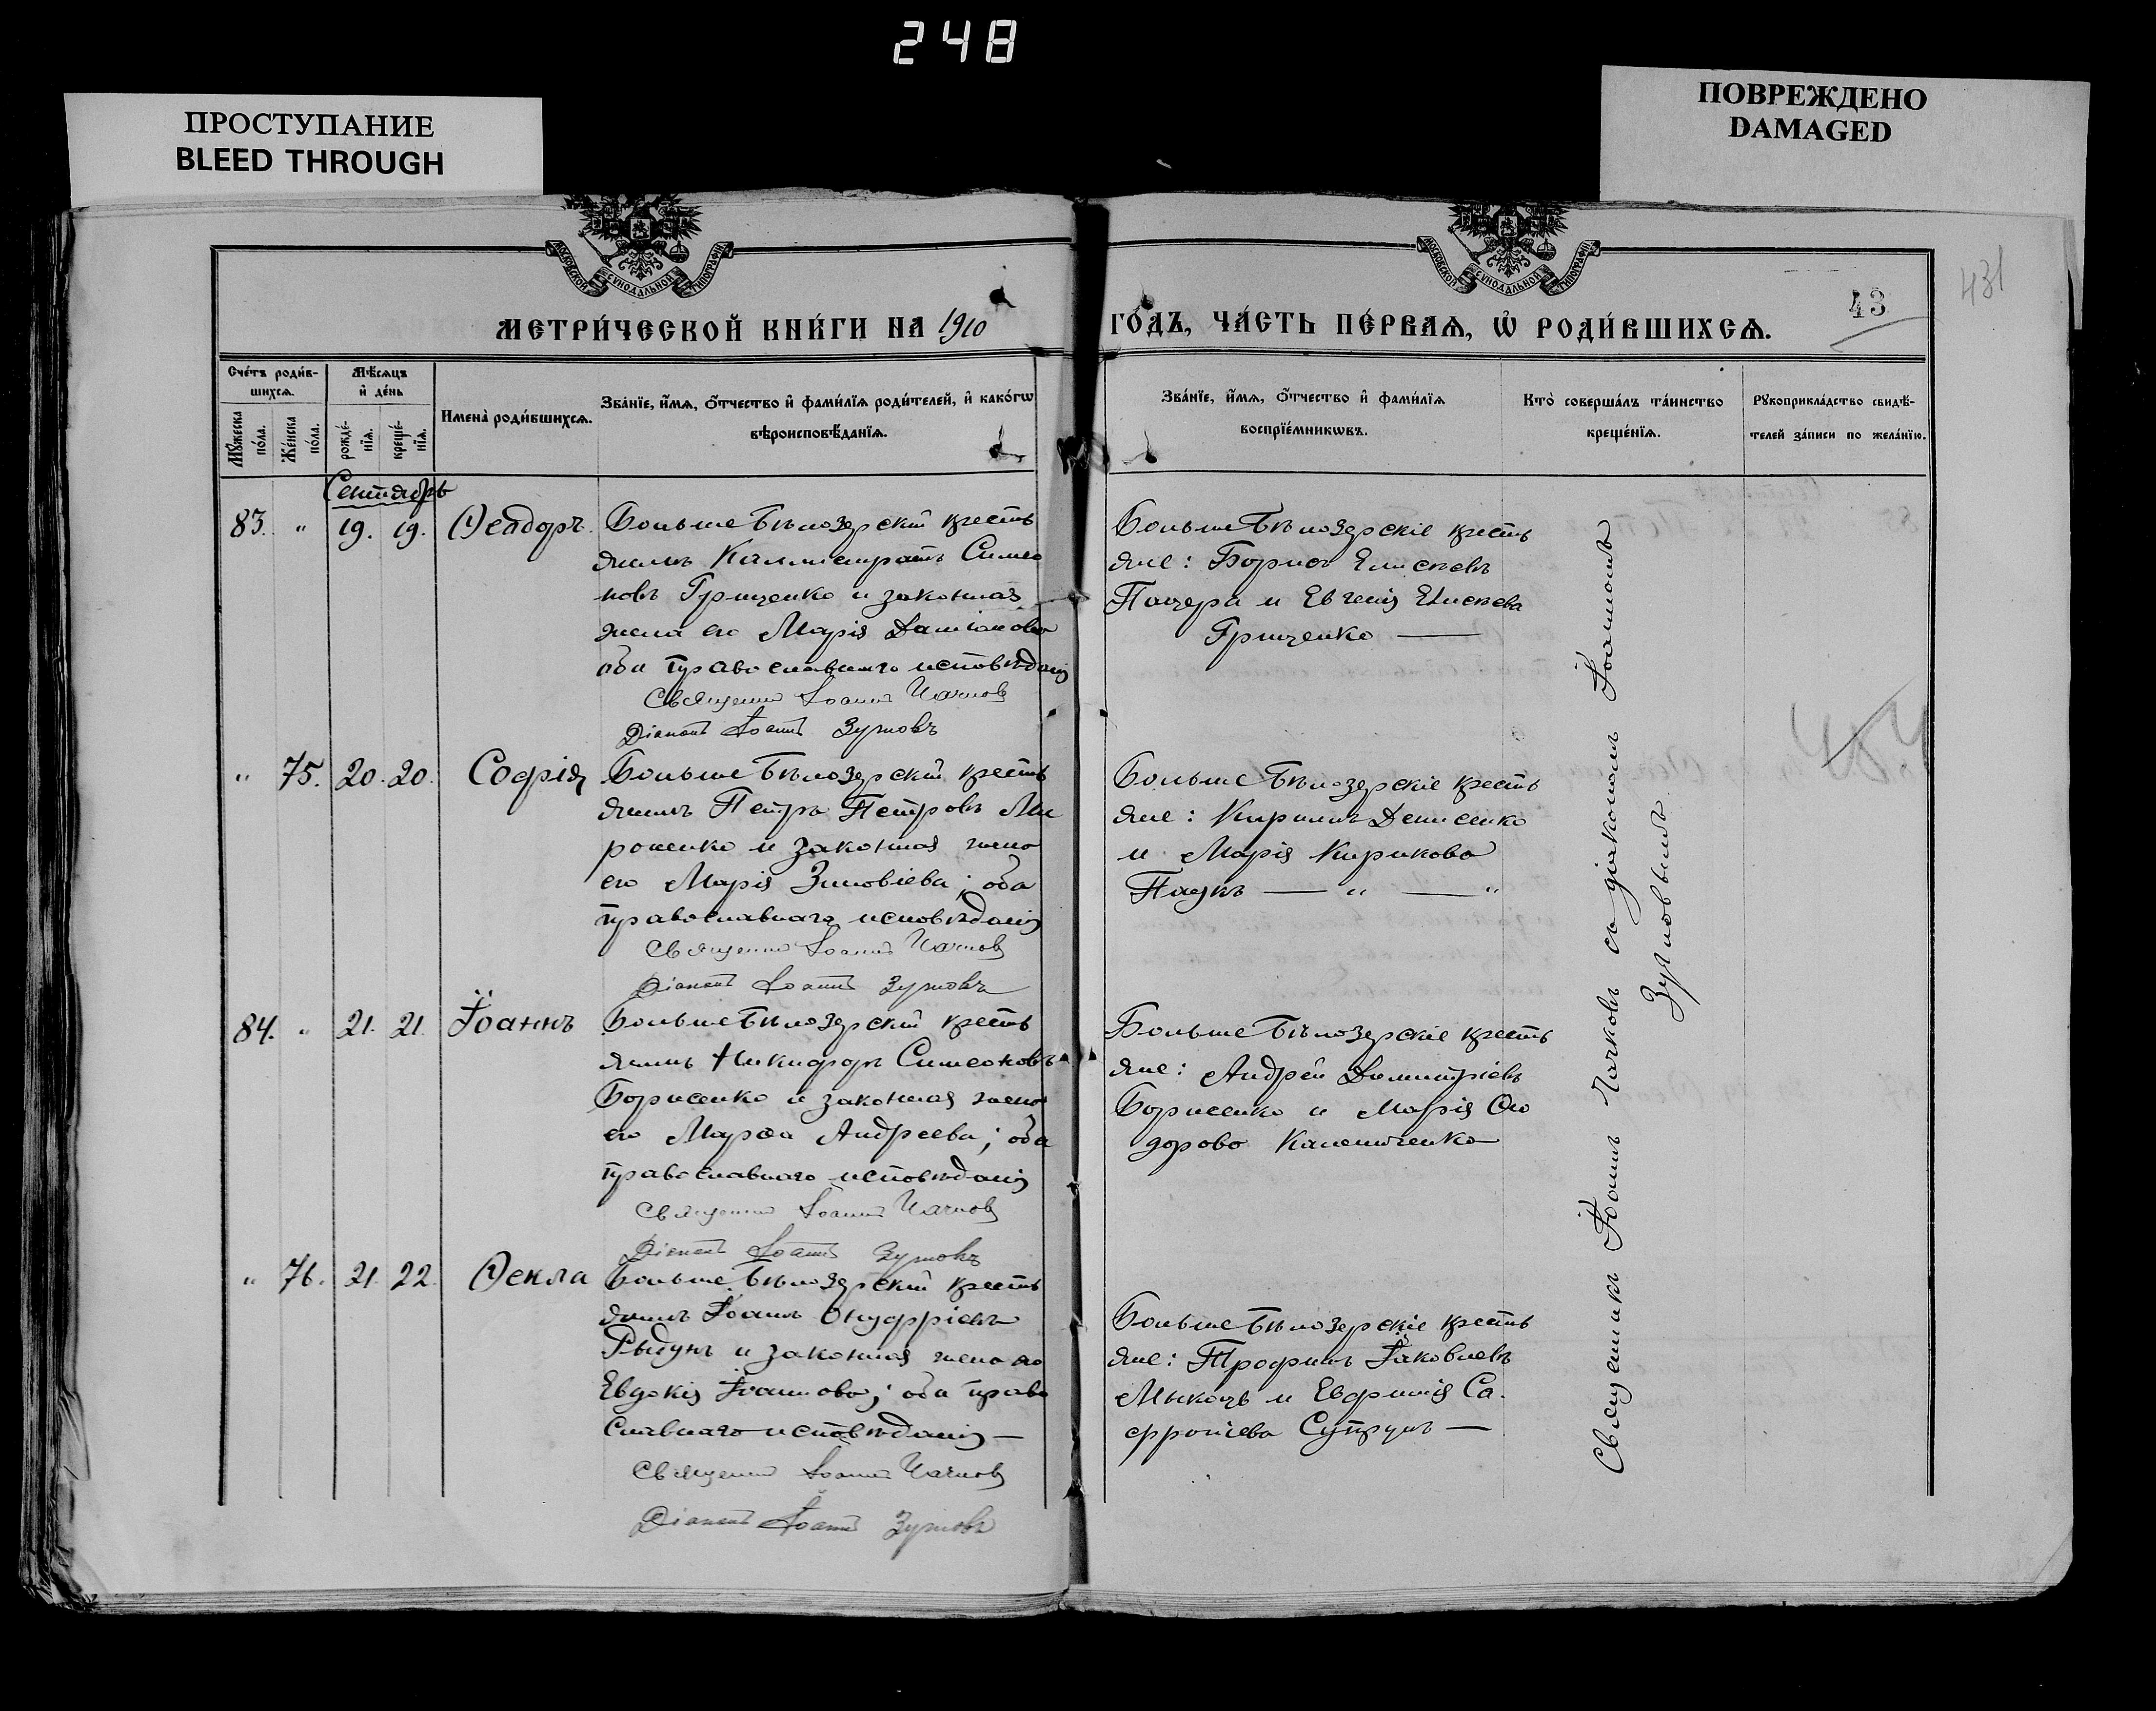 248
ПРОСТУПАНИЕ
BLEED THROUGH
ПОВРЕЖДЕНО
DAMAGED
МОСКОВСКОЙ СУНОДАЛЬНОЙ ТИПОГРАФІИ
МОСКОВСКОЙ СУНОДАЛЬНОЙ ТИПОГРАФІИ
431
43
МЕТРИ́ЧЕСКОЙ КНИ́ГИ НА 1910
ГО́ДЪ, ЧА́СТЬ ПЕ́РВАѦ, Ѡ҆ РОДИ́ВШИХСѦ.
Сче́тъ роди́в-
шихсѧ.
Мꙋ́жеска по́ла.
Же́нска по́ла.
Мѣ́сѧцъ
и҆ де́нь
рожде́-нїѧ.
креще́-нїѧ.
Имена̀ роди́вшихсѧ.
Зва́нїе, и҆́мѧ, ѻ҆́тчество и҆ фами́лїѧ роди́телей, и҆ како́гѡ
вѣроисповѣ́данїѧ.
Зва́нїе, и҆́мѧ, ѻ҆́тчество и҆ фами́лїѧ
воспрїе́мникѡвъ.
Кто̀ соверша́лъ та́инство
креще́нїѧ.
Рꙋкоприкла́дство свидѣ́-
телей за́писи по жела́нїю.
Сентябрь
83. " 19. 19. Ѳеодоръ.
Больше Бѣлозерскій кресть
янинъ Каллистратъ Симео
новъ Грищенко и законная
жена его Марія Даміанова
оба православнаго исповѣданія
Священникъ Іоаннъ Чачковъ
Діаконъ Іоаннъ Зуцковъ
Больше Бѣлозерскіе кресть
яне: Борисъ Елисеевъ
Пащера и Евгенія Елисеева
Грищенко —
" 75. 20. 20. Софія
Больше Бѣлозерскій кресть
янинъ Петръ Петровъ Ми
роненко и законная жена
его Марія Зиновіева; оба
православнаго исповѣданія
Священникъ Іоаннъ Чачковъ
Діаконъ Іоаннъ Зуцковъ
Больше Бѣлозерскіе кресть
яне: Кириллъ Денисенко
и Марія Кирикова
Паукъ — " — "
84. " 21. 21. Іоаннъ
Больше Бѣлозерскій кресть
янинъ Никифоръ Симеоновъ
Борисенко и законная жена
его Марѳа Андреева; оба
православнаго исповѣданія
Священникъ Іоаннъ Чачковъ
Діаконъ Іоаннъ Зуцковъ
Больше Бѣлозерскіе кресть
яне: Андрей Димитріевъ
Борисенко и Марія Ѳео
дорова Калениченко
" 76. 21. 22. Ѳекла
Больше Бѣлозерскій кресть
янинъ Іоаннъ Онуфріевъ
Рыдунъ и законная жена его
Евдокія Іоаннова; оба право
славнаго исповѣданія —
Священникъ Іоаннъ Чачковъ
Діаконъ Іоаннъ Зуцковъ
Больше Бѣлозерскіе кресть
яне: Трофимъ Іаковлевъ
и Евфимія Са.
фроніева Супрунъ —
Священникъ Іоаннъ Чачковъ съ діакономъ Іоанномъ
Зуцковымъ